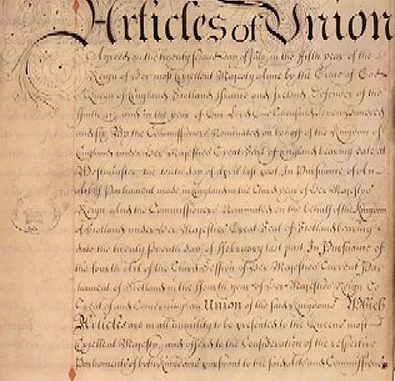 Articles of Union
Agreed on the twenty Second day of July in the fifth year of the
Reign of Her most Excellent Majesty Anne by the Grace of God
Queen of England Scotland France and Ireland Defender of the
Faith &c and in the year of our Lord One thousand Seven hundred
and Six By the Commissioners Nominated on behalf of the Kingdom of
England under Her Majesties Great Seal of England bearing date at
Westminster the tenth day of April last past In Pursuance of An
Act of Parliament made in England in the third year of Her Majesties
Reign And the Commissioners Nominated on the behalf of the Kingdom
of Scotland under Her Majesties Great Seal of Scotland bearing
date the twenty seventh day of February last past In Pursuance of
the fourth Act of the third Session of Her Majesties Current Par
liament of Scotland in the fifth year of Her Majesties Reign To
Treat of and concerning an Union of the said Kingdoms Which
Articles are in all humility to be presented to the Queens most
Excellent Majesty and offered to the Consideration of the respective
Parliaments of both Kingdoms pursuant to the said Acts and Commissions